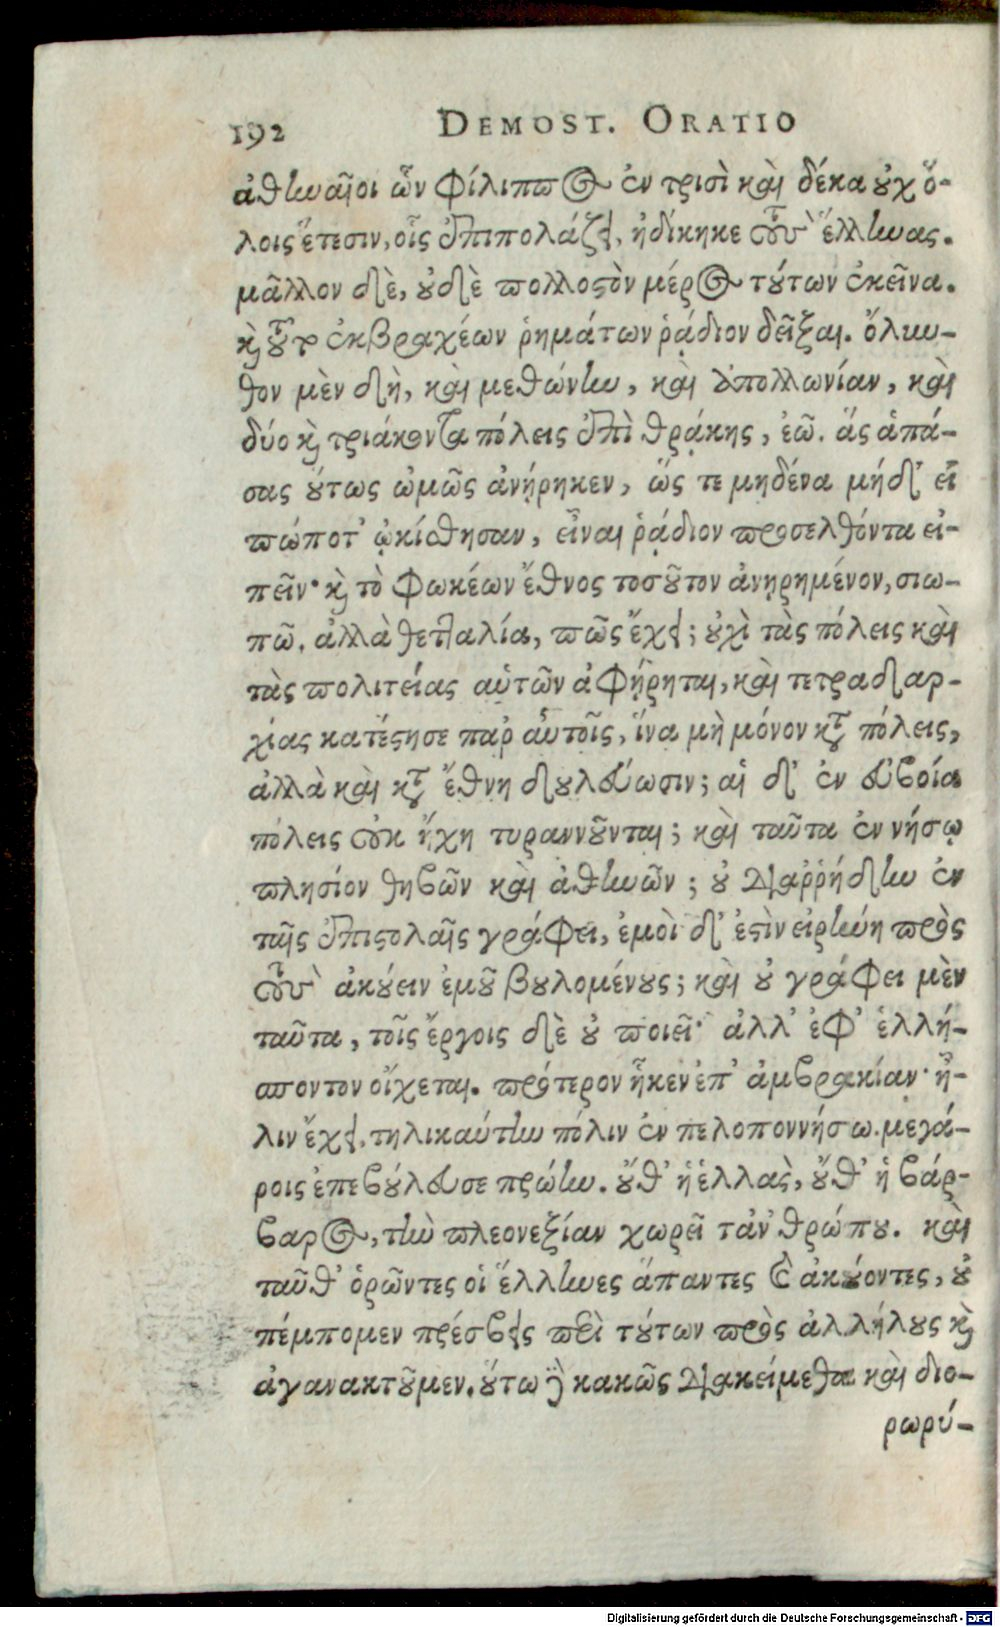 192 DEMOST. ORATIO
ἀθηναῖοι ὧν Φίλιππος ἐν τρισὶ καὶ δέκα οὐχ ὅ-
λοις ἔτεσιν, οἷς ἐπιπολάζει, ἠδίκηκε τοὺς ἕλληνας.
μᾶλλον δὲ, οὐδὲ πολλοστὸν μέρος τούτων ἐκεῖνα.
καὶ τοῦτο ἐκ βραχέων ῥημάτων ῥᾴδιον δεῖξαι. ὄλυν-
θον μὲν δὴ, καὶ μεθώνην, καὶ ἀπολλωνίαν, καὶ
δύο καὶ τριάκοντα πόλεις ἐπὶ θρᾴκης, ἐῶ. ἃς ἁπά-
σας οὕτως ὠμῶς ἀνῄρηκεν, ὥς τε μηδένα μήδ' εἰ
πώποτ' ᾠκίσθησαν, εἶναι ῥᾴδιον προσελθόντα εἰ-
πεῖν· καὶ τὸ Φωκέων ἔθνος τοσοῦτον ἀνῃρημένον, σιω-
πῶ. ἀλλὰ θετταλία, πῶς ἔχει; οὐχὶ τὰς πόλεις καὶ
τὰς πολιτείας αὐτῶν ἀφῄρηται, καὶ τετραδαρ-
χίας κατέστησε παρ' αὐτοῖς, ἵνα μὴ μόνον κατὰ πόλεις,
ἀλλὰ καὶ κατὰ ἔθνη δουλεύωσιν; αἱ δ' ἐν εὐβοίᾳ
πόλεις οὐκ ἤχη τυραννοῦνται; καὶ ταῦτα ἐν νήσῳ
πλησίον θηβῶν καὶ ἀθηνῶν; οὐ διαῤῥήδην ἐν
ταῖς ἐπιστολαῖς γράφει, ἐμοὶ δ' ἐστὶν εἰρήνη πρὸς
τοὺς ἀκούειν ἐμοῦ βουλομένους; καὶ οὐ γράφει μὲν
ταῦτα, τοῖς ἔργοις δὲ οὐ ποιεῖ· ἀλλ' ἐφ' ἑλλή-
σποντον οἴχεται. πρότερον ἧκεν ἐπ' ἀμβρακίαν· ἦ-
λιν ἔχει, τηλικαύτην πόλιν ἐν πελοποννήσω. μεγά-
ροις ἐπεβούλευσε πρώην. οὔθ' ἡ ἑλλὰς, οὔθ' ἡ βάρ-
βαρος, τὴν πλεονεξίαν χωρεῖ τἀνθρώπου. καὶ
ταῦθ' ὁρῶντες οἱ ἕλληνες ἅπαντες καὶ ἀκούοντες, οὐ
πέμπομεν πρέσβεις περὶ τούτων πρὸς ἀλλήλους καὶ
ἀγανακτοῦμεν. οὕτω δὲ κακῶς διακείμεθα καὶ διο-
ρωρύ-
Digitalisierung gefördert durch die Deutsche Forschungsgemeinschaft - DFG